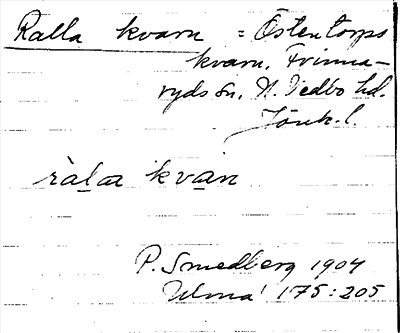 Ralla kvarn = Östentorps
kvarn, Frinna-
ryds sn, N. Vedbo hd.
Jönk. l.
ràlaa kvàn
P. Smedberg 1904
Ulma 175:205